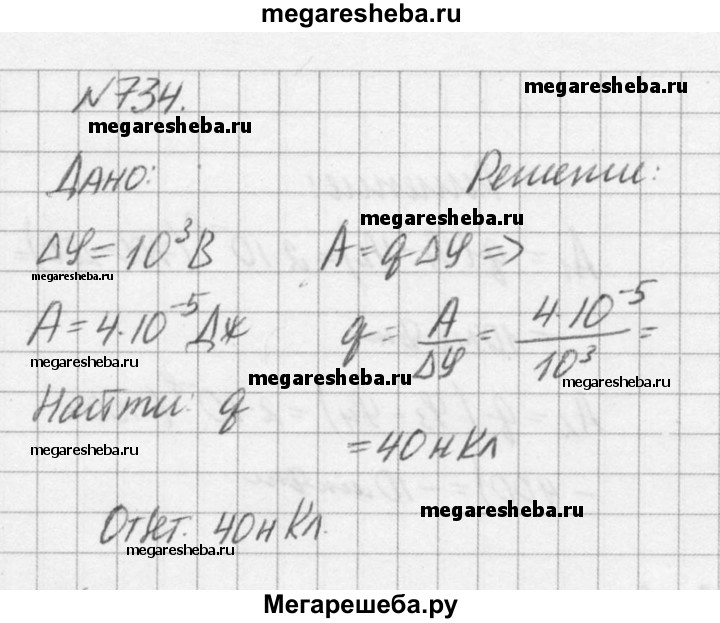 megaresheba.ru
№734.
megaresheba.ru
megaresheba.ru
Дано:
Решение:
megaresheba.ru
Δφ = 10³ В
A = q Δφ =>
megaresheba.ru
A = 4·10⁻⁵ Дж
q = A/Δφ = 4·10⁻⁵/10³ =
megaresheba.ru
megaresheba.ru
megaresheba.ru
Найти: q
= 40 нКл
megaresheba.ru
Ответ. 40 нКл.
megaresheba.ru
megaresheba.ru
Мегарешеба.ру